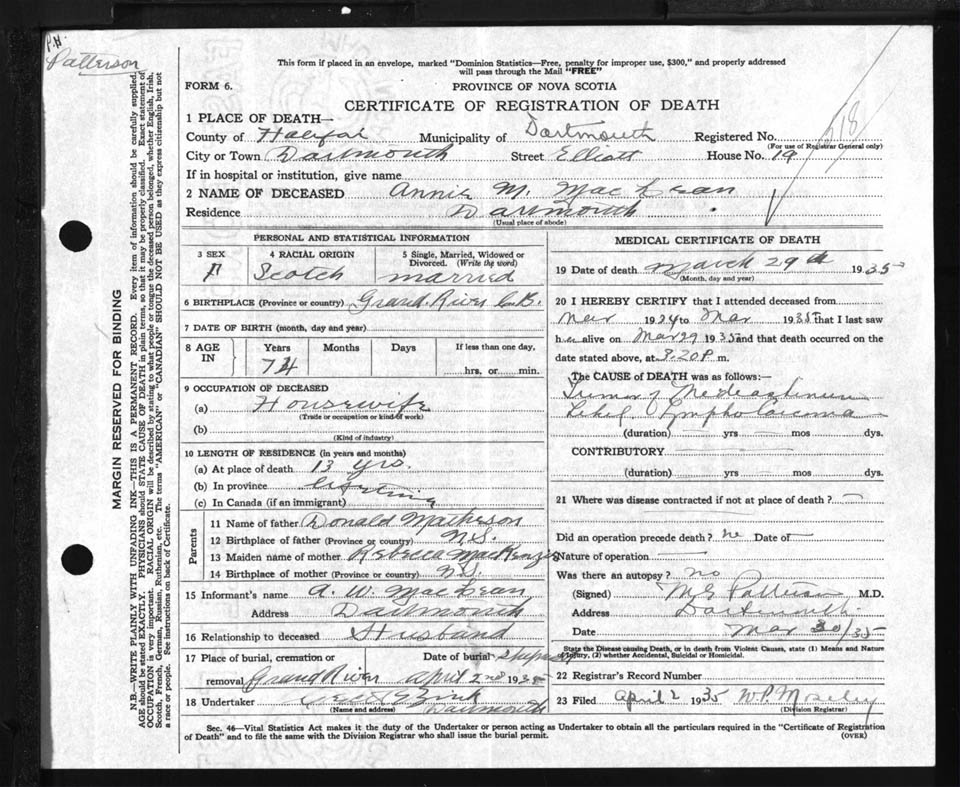 P.H.
Patterson
This form if placed in an envelope, marked "Dominion Statistics—Free, penalty for improper use, $300," and properly addressed
will pass through the Mail "FREE"
FORM 6.
PROVINCE OF NOVA SCOTIA
CERTIFICATE OF REGISTRATION OF DEATH
1 PLACE OF DEATH—
County of Halifax Municipality of Dartmouth Registered No. 518
(For use of Registrar General only)
City or Town Dartmouth Street Elliott House No. 19
If in hospital or institution, give name
2 NAME OF DECEASED Annie M. MacLean
Residence Dartmouth
(Usual place of abode)
PERSONAL AND STATISTICAL INFORMATION
3 SEX F
4 RACIAL ORIGIN Scotch
5 Single, Married, Widowed or Divorced. (Write the word) married
6 BIRTHPLACE (Province or country) Grand River C.B.
7 DATE OF BIRTH (month, day and year)
8 AGE IN Years 74 Months Days If less than one day, hrs. or min.
9 OCCUPATION OF DECEASED
(a) Housewife
(Trade or occupation or kind of work)
(b)
(Kind of industry)
10 LENGTH OF RESIDENCE (in years and months)
(a) At place of death 13 yrs.
(b) In province lifetime
(c) In Canada (if an immigrant)
Parents
11 Name of father Donald Matheson
12 Birthplace of father (Province or country) N.S.
13 Maiden name of mother Rebecca MacKenzie
14 Birthplace of mother (Province or country) N.S.
15 Informant's name A. W. MacLean
Address Dartmouth
16 Relationship to deceased Husband
17 Place of burial, cremation or removal Grand River
Date of burial
April 2nd 1935
18 Undertaker Zink
(Name and address) Dartmouth
MEDICAL CERTIFICATE OF DEATH
19 Date of death March 29th 1935
(Month, day and year)
20 I HEREBY CERTIFY that I attended deceased from
Mar 1934 to Mar 1935 that I last saw
her alive on Mar 29 1935 and that death occurred on the
date stated above, at 8.20 P. m.
The CAUSE OF DEATH was as follows:—
Tumor of Mediastinum
(duration) yrs mos dys.
CONTRIBUTORY
(duration) yrs mos dys.
21 Where was disease contracted if not at place of death? —
Did an operation precede death? no Date of —
Nature of operation —
Was there an autopsy? no
(Signed) Patterson M.D.
Address Dartmouth
Date Mar 30/35
State the Disease causing Death, or in death from Violent Causes, state (1) Means and Nature
of Injury, (2) whether Accidental, Suicidal or Homicidal.
22 Registrar's Record Number
23 Filed April 2 1935 W.P. Moseley
(Division Registrar)
Sec. 46—Vital Statistics Act makes it the duty of the Undertaker or person acting as Undertaker to obtain all the particulars required in the "Certificate of Registration
of Death" and to file the same with the Division Registrar who shall issue the burial permit.
(OVER)
MARGIN RESERVED FOR BINDING
N.B.—WRITE PLAINLY WITH UNFADING INK—THIS IS A PERMANENT RECORD. Every item of information should be carefully supplied.
AGE should be stated EXACTLY. PHYSICIANS should STATE CAUSE OF DEATH in plain terms, so that it may be properly classified. Exact statement of
OCCUPATION is very important. RACIAL ORIGIN will be described by stating to what people or tongue the deceased person belonged, whether English, Irish,
Scotch, French, German, Russian, Ruthenian, etc. The terms "AMERICAN" or "CANADIAN" SHOULD NOT BE USED as they express citizenship but not
a race or people. See instructions on back of Certificate.